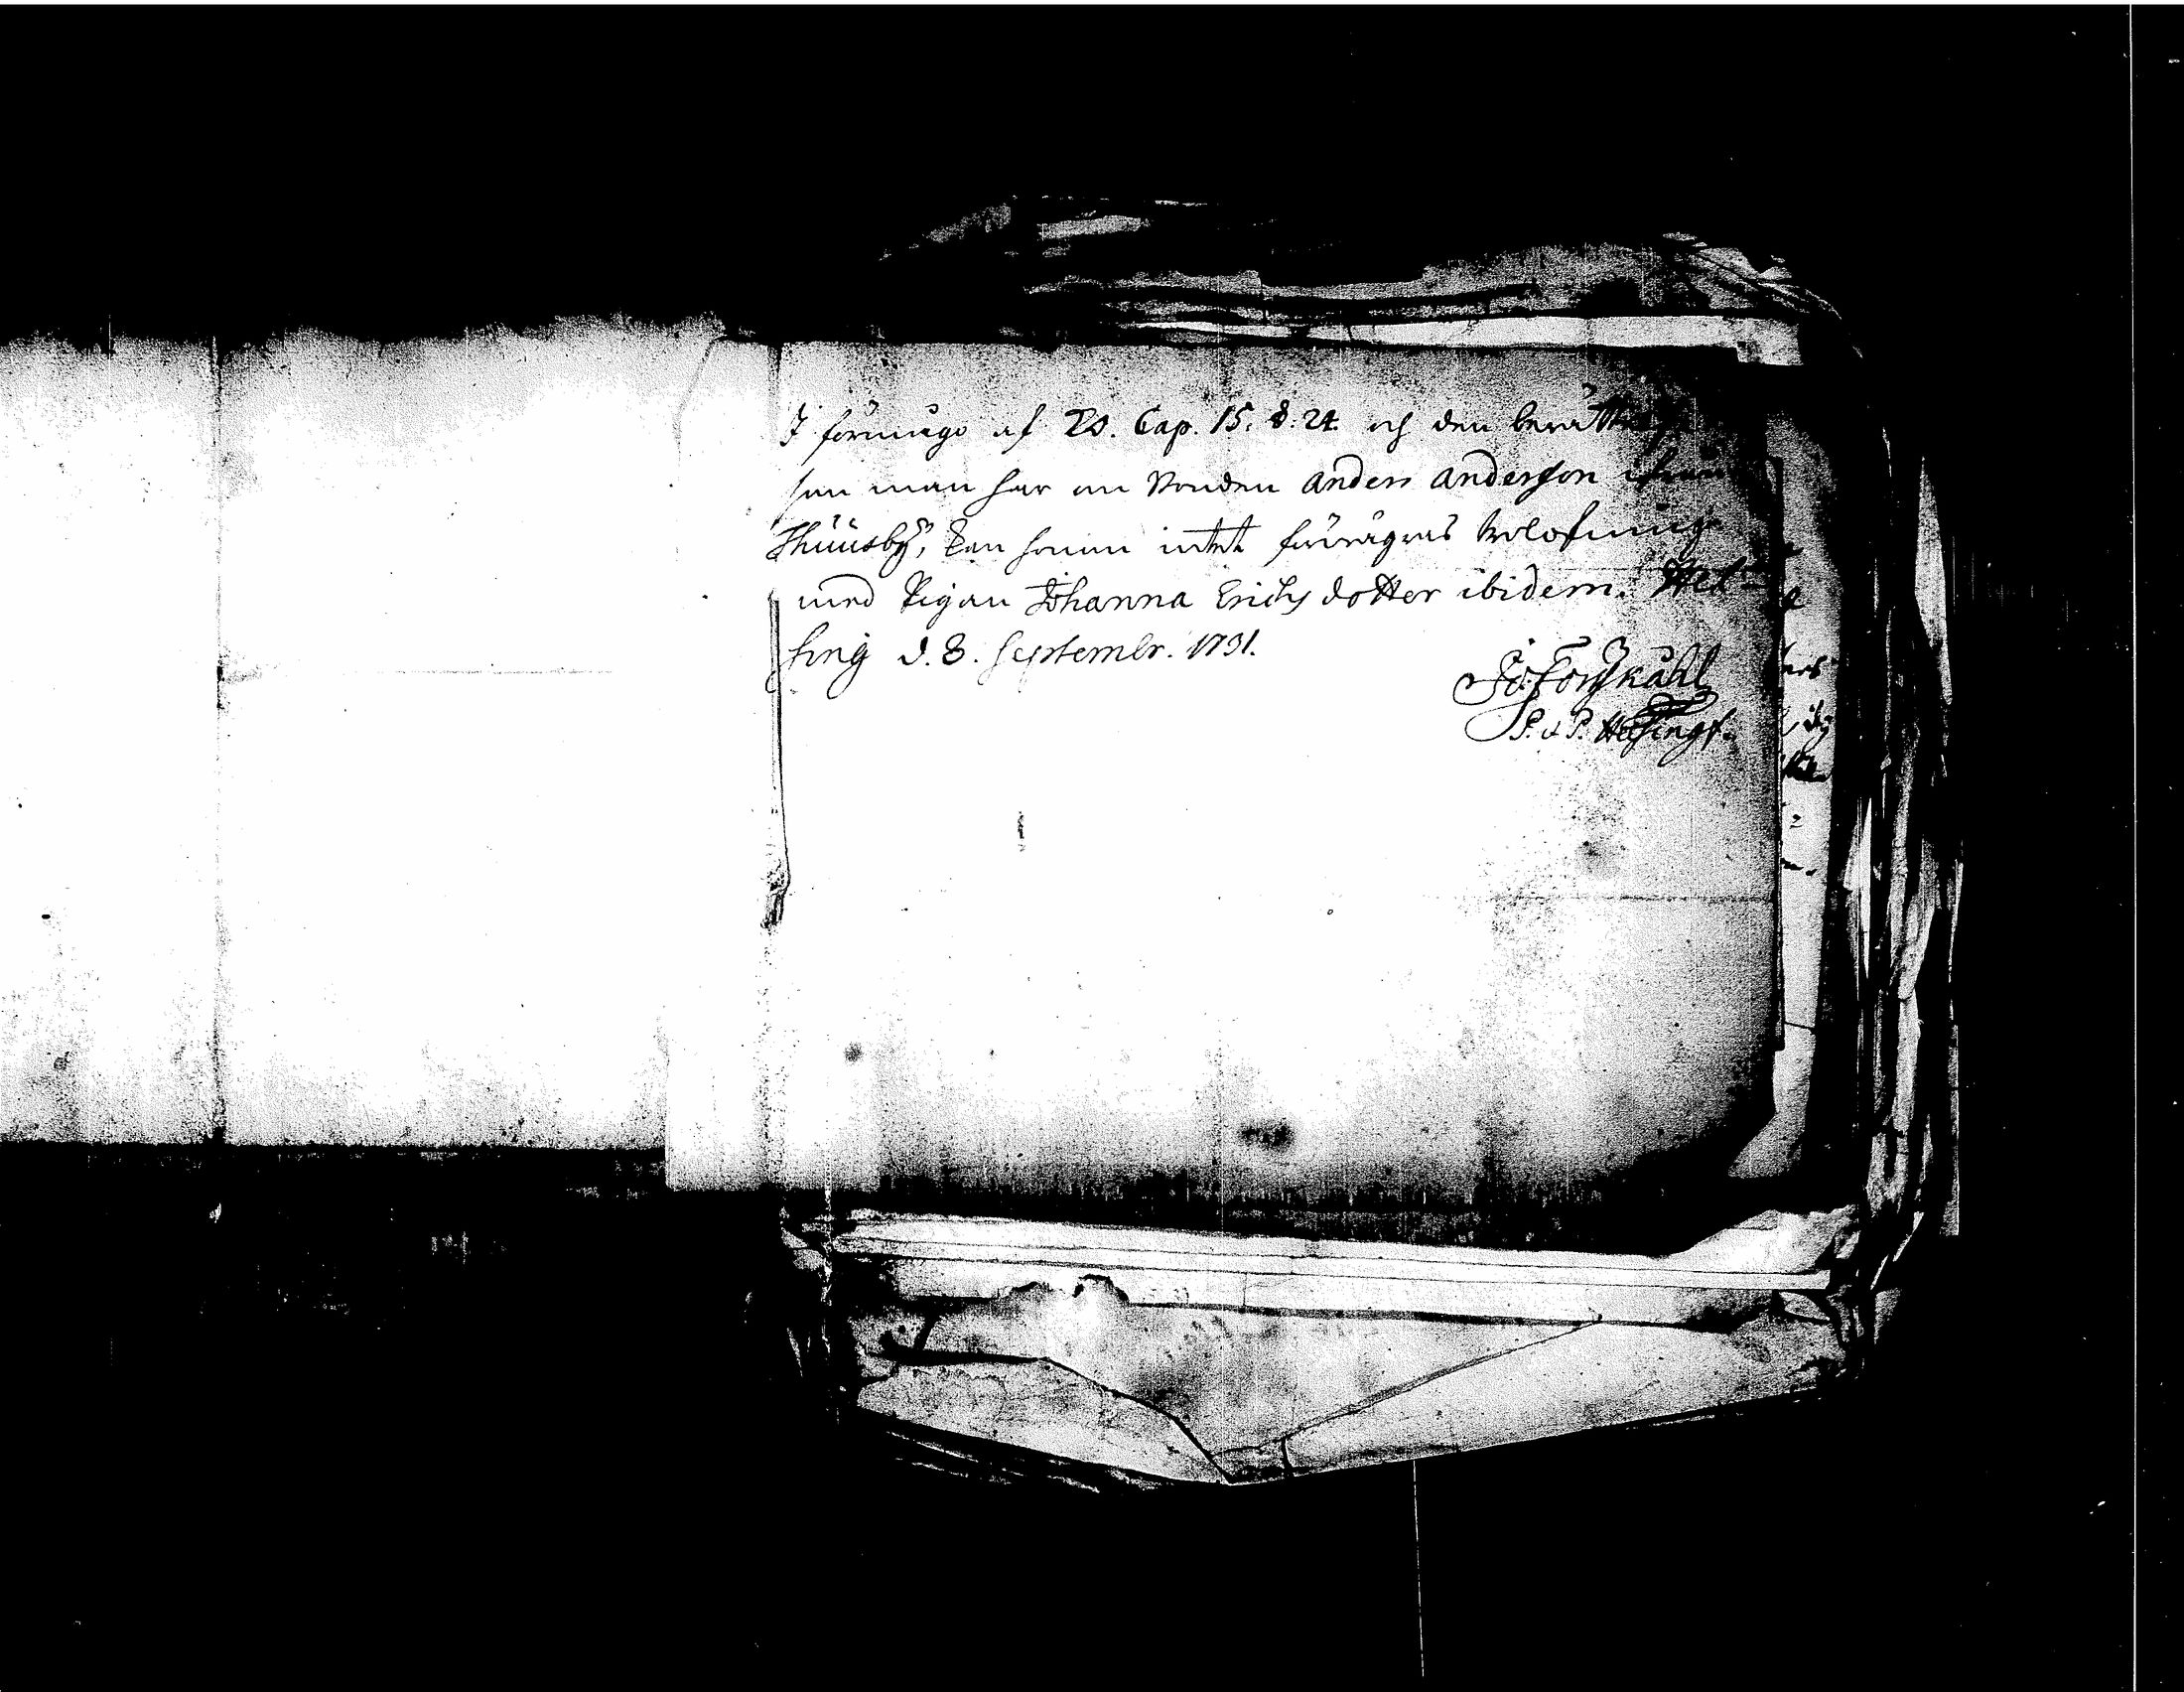 I förmågo af KO. Cap. 15. §. 24 och den berättelse
som man har om Bonden Anders Andersson ifrån
Thuusby, kan honom intet förwägras trolofning
med Pigan Johanna Erichsdotter ibidem. Hel-
sing d. 8. Septembr. 1731.
Jo: Forskåhl
P. & P. Helsingf.